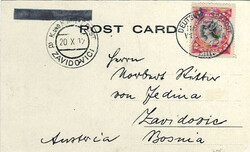 POST CARD
ZAVIDOVIĆI
20 X 12
Herrn
Norbert Ritter
von Jedina
Zavidovic
Austria Bosnia